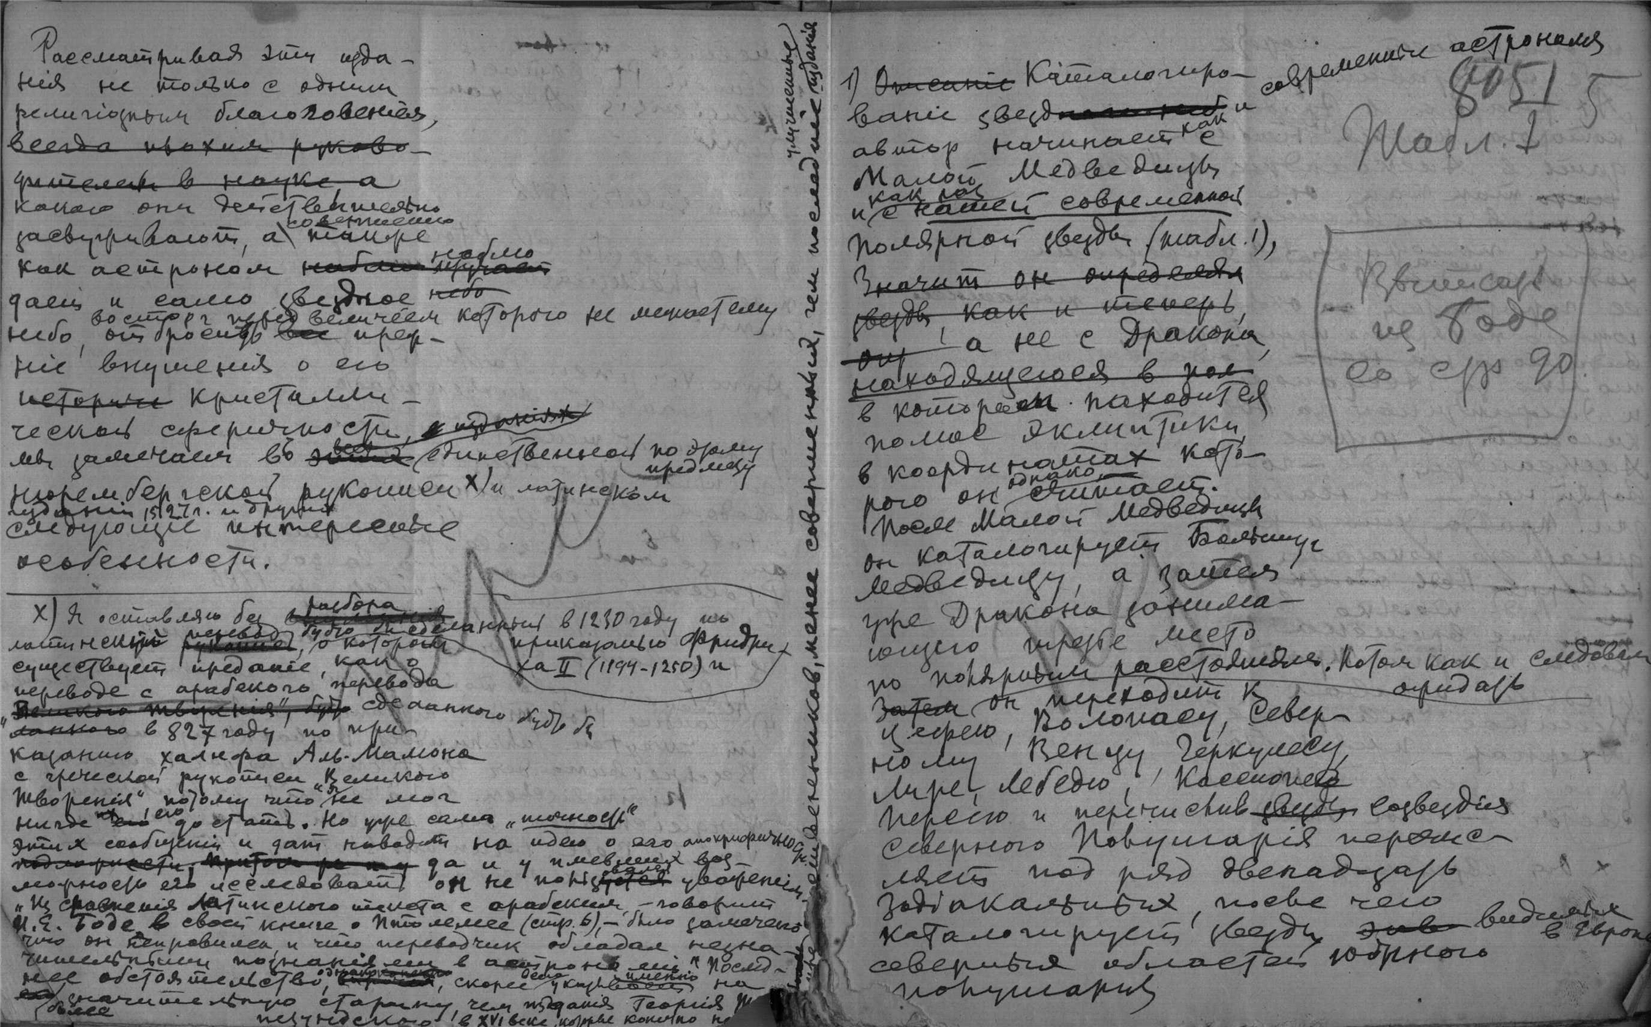 Рассматривая эти изда-
нія не только с одним
религіозным благоговеніем,
всегда плохим руково-
дителем в науке, а
какого они действительно
совершенно
засвуживают, а также
как астроном наблю
дает и само звездное небо
восторг перед величием которого не мешает ему
небо, отбросив все преж-
ніе внушения о его
историч Кристалли-
ческой сферичности,
мы замечаем въ единственной по этому
предмету
нюрембергской рукописи х) и латинском
изданіи 1527 г. и других
следующие интересные
особенности.
х) Я оставляю без разбора
сделанный в 1230 году по
латинский перевод, о котором
приказанію Фридри-
существует преданіе, как о
ха II (1194-1250) и
переводе с арабского перевода
"Великого творения", будто сделанного
в 827 году по при-
казанию халифа Аль-Мамона
с греческой рукописи "Великого
творенія", потому что не мог
нигде его достать. Но уже сама "точность"
этих сообщеній и дат наводит на идею о его апокрифичнос
да и у имевших воз-
можность его исследовать он не
"Из сравнения латинского текста с арабским, - говорит
И.Е. Боде в своей книге о Птолемее (стр. 6), - было замечено
что он неправилен и что переводчик обладал незна-
чительными познаніями в астрономіи". Послед-
нее обстоятельство, скорее указывает именно на
более значительную старину, чем изданія Георгія
в XVI веке, которые конечно
ущественников, менее совершенныя, чем последніе изданія
улучшенные
1) Описаніе Каталогиро-
ваніе звезд и
современные астрономы
автор начинает как с
Малой Медведицы
как раз
и с нашей современной
полярной звезды (табл. 1),
Значит он определял
звезды как и теперь,
а не с Дракона,
находящегося в пол
в котором находится
полюс эклиптики,
в координатах кото-
рого он однако считает.
После Малой Медведицы
он каталогирует Большую
Медведицу, а затем
уже Дракона занима-
ющего третье место
по полярным расстояниям. Потом как и следовало
ожидать
Затем он переходит к
Цефею, Волопасу, Север-
ному Венцу, Геркулесу,
Лире, Лебедю, Кассиопее
Персею и перечислив звезды созвездия
северного Полушарія перечис-
ляет под ряд двенадцать
Зодіакальных, после чего
каталогирует звезды видимыя
в Европе
северныя областей южного
полушарія
8051 5
Табл. I
Выписать
из Боде
со стр 90.